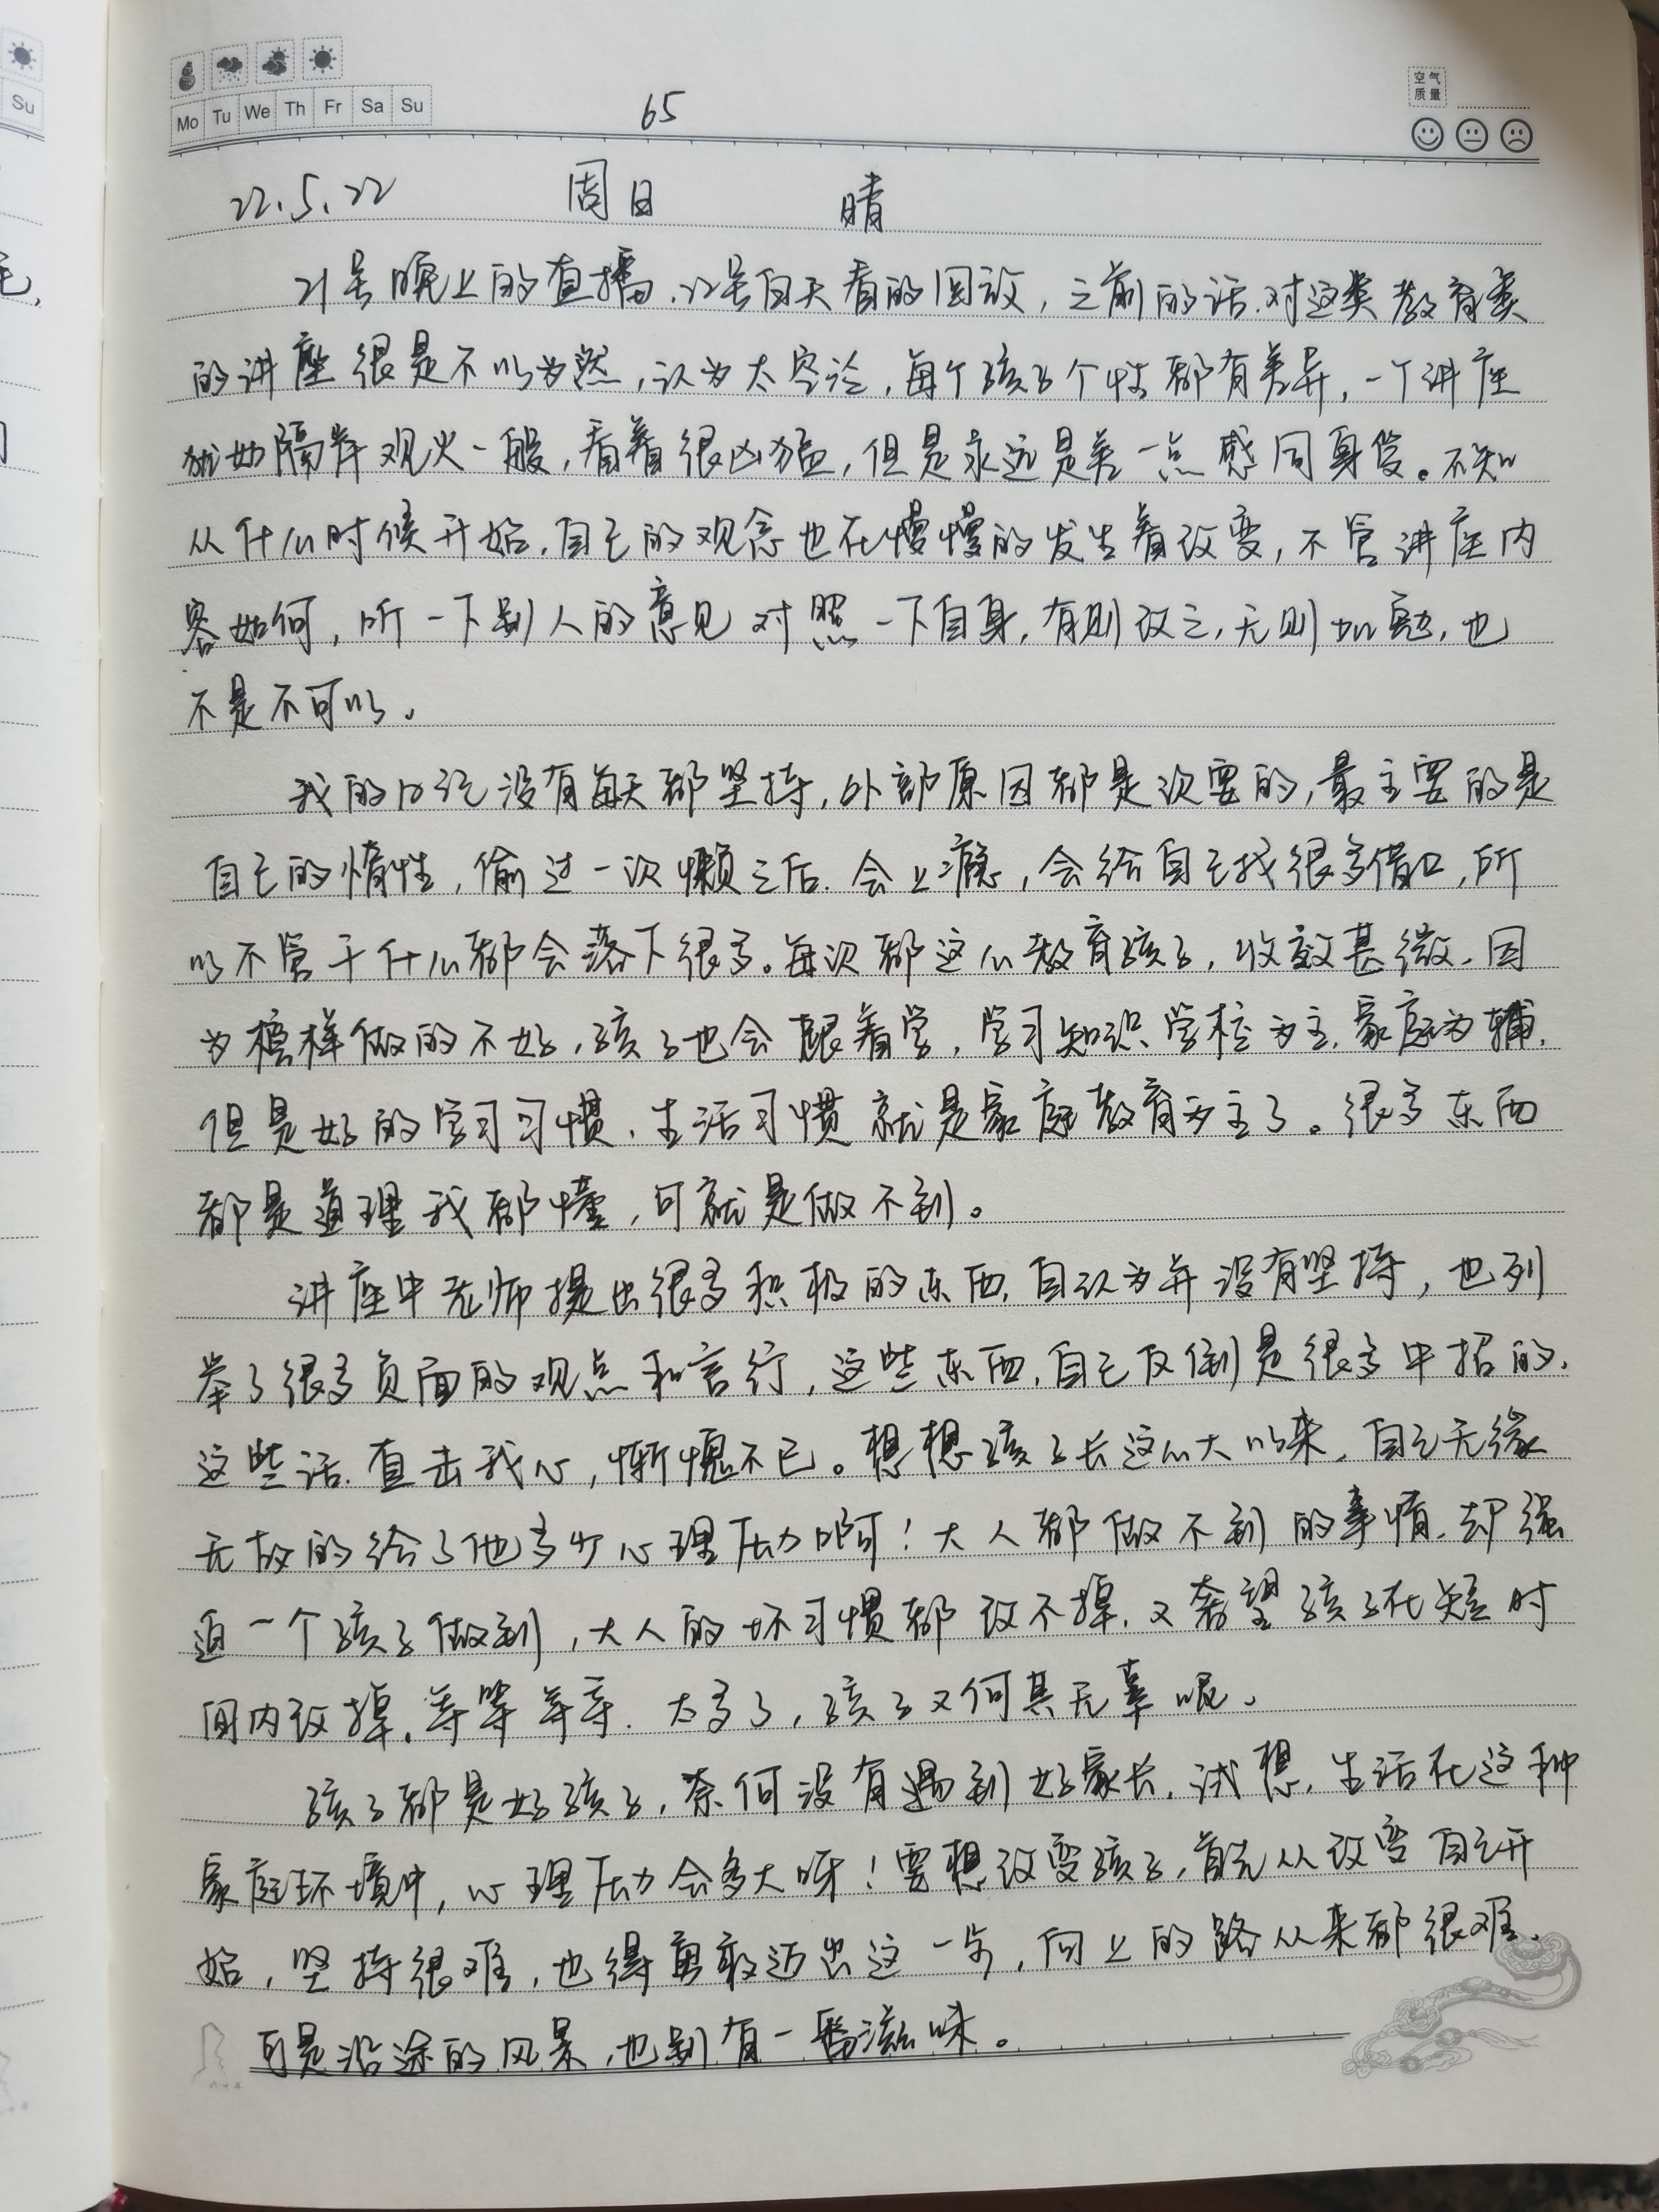 Su
Mo Tu We Th Fr Sa Su
65
空气
质量
22.5.22 周日 晴
21号晚上的直播,22号白天看的回放,之前的话,对这类教育类
的讲座很是不以为然,认为太空论,每个孩子个性都有差异,一个讲座
犹如隔岸观火一般,看着很凶猛,但是永远是差一点感同身受。不知
从什么时候开始,自己的观念也在慢慢的发生着改变,不管讲座内
容如何,听一下别人的意见对照一下自身,有则改之,无则加勉,也
不是不可以。
我的日记没有每天都坚持,外部原因都是次要的,最主要的是
自己的惰性,偷过一次懒之后,会上瘾,会给自己找很多借口,所
以不管干什么都会落下很多。每次都这么教育孩子,收效甚微,因
为榜样做的不好,孩子也会跟着学,学习知识学校为主,家庭为辅,
但是好的学习习惯,生活习惯就是家庭教育为主了。很多东西
都是道理我都懂,可就是做不到。
讲座中老师提出很多积极的东西,自认为并没有坚持,也列
举了很多负面的观点和言行,这些东西,自己反倒是很多中招的,
这些话,直击我心,惭愧不已。想想孩子长这么大以来,自己无缘
无故的给了他多少心理压力啊!大人都做不到的事情,却强
迫一个孩子做到,大人的坏习惯都改不掉,又希望孩子在短时
间内改掉,等等等等,太多了,孩子又何其无辜呢。
孩子都是好孩子,奈何没有遇到好家长,试想,生活在这种
家庭环境中,心理压力会多大呀!要想改变孩子,首先从改变自己开
始,坚持很难,也得勇敢迈出这一步,向上的路从来都很难,
可是沿途的风景,也别有一番滋味。